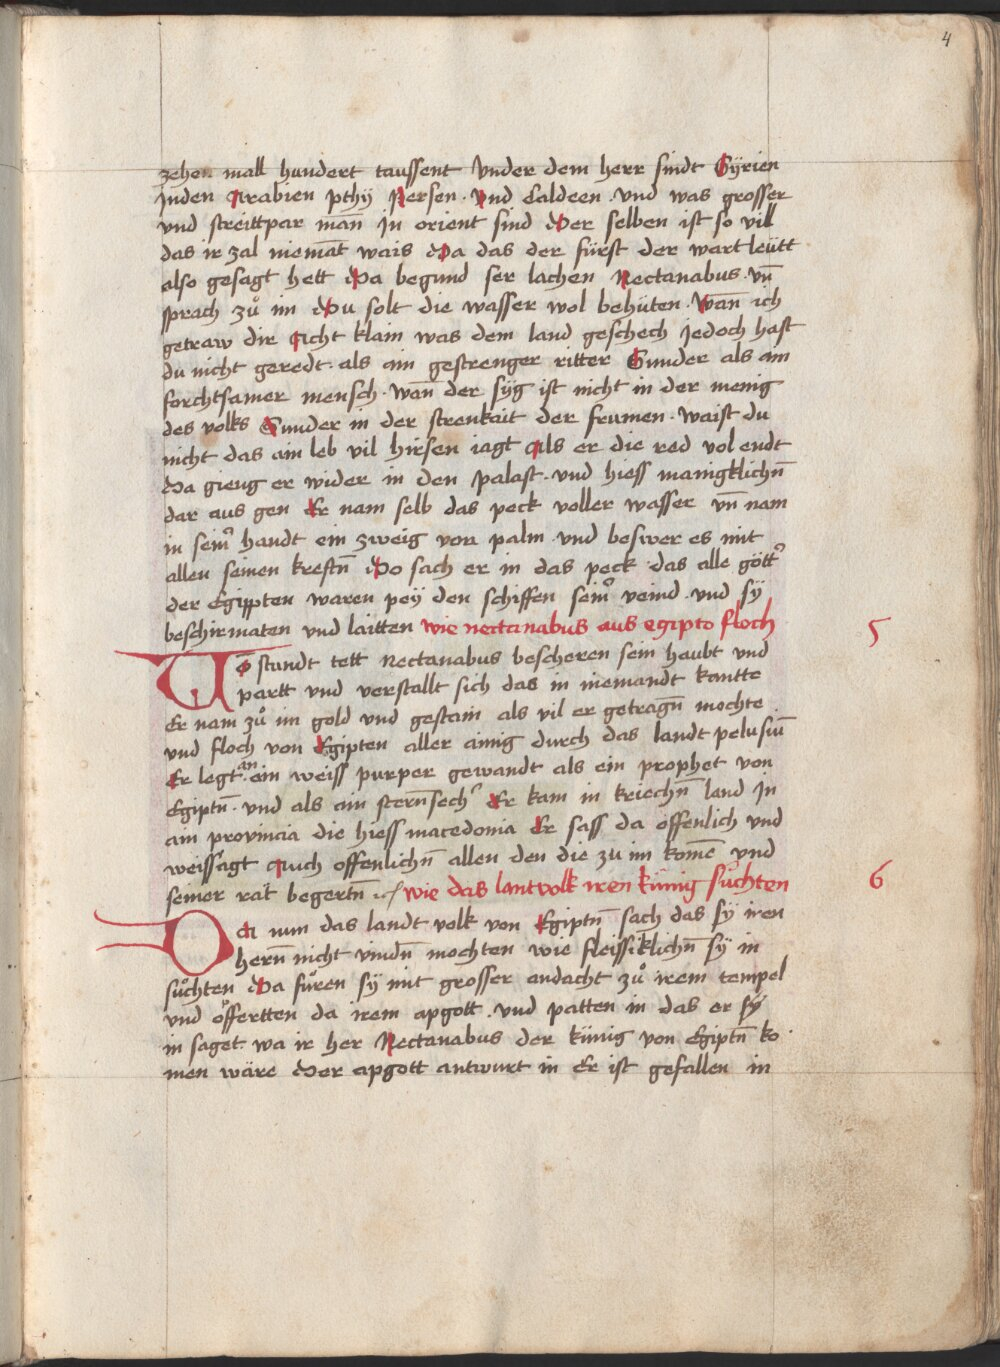 4
zehen mall hundert taussent Vnder dem herr sindt Syrien
Inden Arabien pthÿ Persen · vnd Caldeen · vnd was grosser
vnd streittpar man̄ In orient sind Der selben ist so vill
das ir zal niemāt wais Da das der fürst der wartleütt
also gesagt hett Da begund ser lachen Nectanabus · vn̄
sprach zů im Du solt die wasser wol behüten · Wan̄ ich
getraw dir Icht klain was dem land geschech Jedoch hast
du nicht geredt · als ain gestrenger ritter Sunder als ain
forchtsamer mensch · wan̄ der syg ist nicht in der menig
des volks Sunder in der strenkait der frumen · waist du
nicht das ain leb vil hirsen iagt Als er die red vol endt
Da gieng er wider in den palast · vnd hiess manigklichn̄
dar aus gen Er nam selb das peck voller wasser vn̄ nam
in seinr̄ handt ein zweig von palm · vnd beswer es mit
allen seinen kreftn̄ Do sach er in das peck das alle göttr̄
der Egippten waren pey den schiffen seinr̄ veind · vnd sÿ
beschirmaten vnd laitten wie nectanabus aus egipto floch
5
Zo stundt tett Nectanabus bescheren sein haubt vnd
partt vnd verstallt sich das in niemandt kantte
Er nam zů im gold vnd gestain als vil er getragn̄ mochte
vnd floch von Egipten aller ainig durch das landt pelusiū
Er legt an ein weiss purper gewandt als ein prophet von
Egiptn̄ · vnd als ain stern̄sechr̄ Er kam in kriechn̄ land In
ain provincia die hiess macedonia Er sass da offenlich vnd
weissagt Auch offenlichn̄ allen den die zu im komē vnd
seiner rat begertn̄ wie das lantvolk iren künig sůchten
6
Da nun das landt volk von Egiptn̄ sach das sÿ iren
hern̄ nicht vindn̄ mochten wie fleissiklichn̄ sÿ in
sůchten Da fůren sÿ mit grosser andacht zů irem tempel
vnd öffertten da irem apgott · vnd patten in das er sÿ
in saget · wa ir her Nectanabus der künig von Egiptn̄ ko
men wäre Der apgott antwurt in Er ist gefallen in